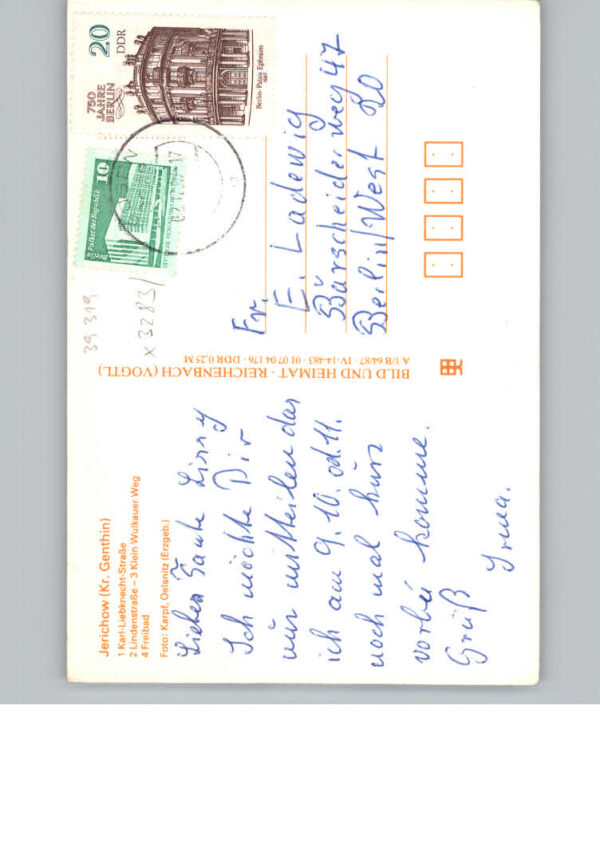 Jerichow (Kr. Genthin)
1 Karl-Liebknecht-Straße
2 Lindenstraße – 3 Klein Wulkauer Weg
4 Freibad
Foto: Karpf, Oelsnitz (Erzgeb.)
Lieben Tante Lissy
Ich möchte Dir
nur mitteilen das
ich am 9. 10. od. 11.
noch mal kurz
vorbei komme.
Gruß
Irma.
BILD UND HEIMAT · REICHENBACH (VOGTL)
A 1/B 64/87 · IV-14-483 · 01 07 04 176 · DDR 0,25 M
39 319
x 3283/
750
JAHRE
BERLIN
20
DDR
Berlin · Palais Ephraim
1987
10
Berlin, Palast der Republik
Fr.
E. Ladewig
Bürscheider weg 47
Berlin/West 20